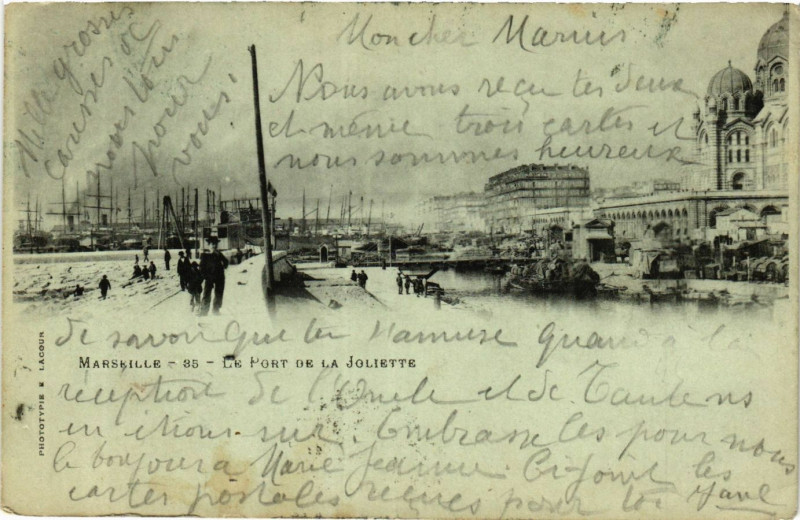 Mon cher Marius
Nous avons reçu tes deux
et même trois cartes et
nous sommes heureux
de savoir que tu t'amuse Quand à la
MARSEILLE - 35 - LE PORT DE LA JOLIETTE
réception de l'Oncle et de Tante ns
en étions sur. Embrasse les pour nous
le bonjour à Marie Jeanne Ci-joint les
cartes postales reçues pour toi
Mille grosses
caresses de
nous tous
pour
vous.
PHOTOTYPIE E LACOUR